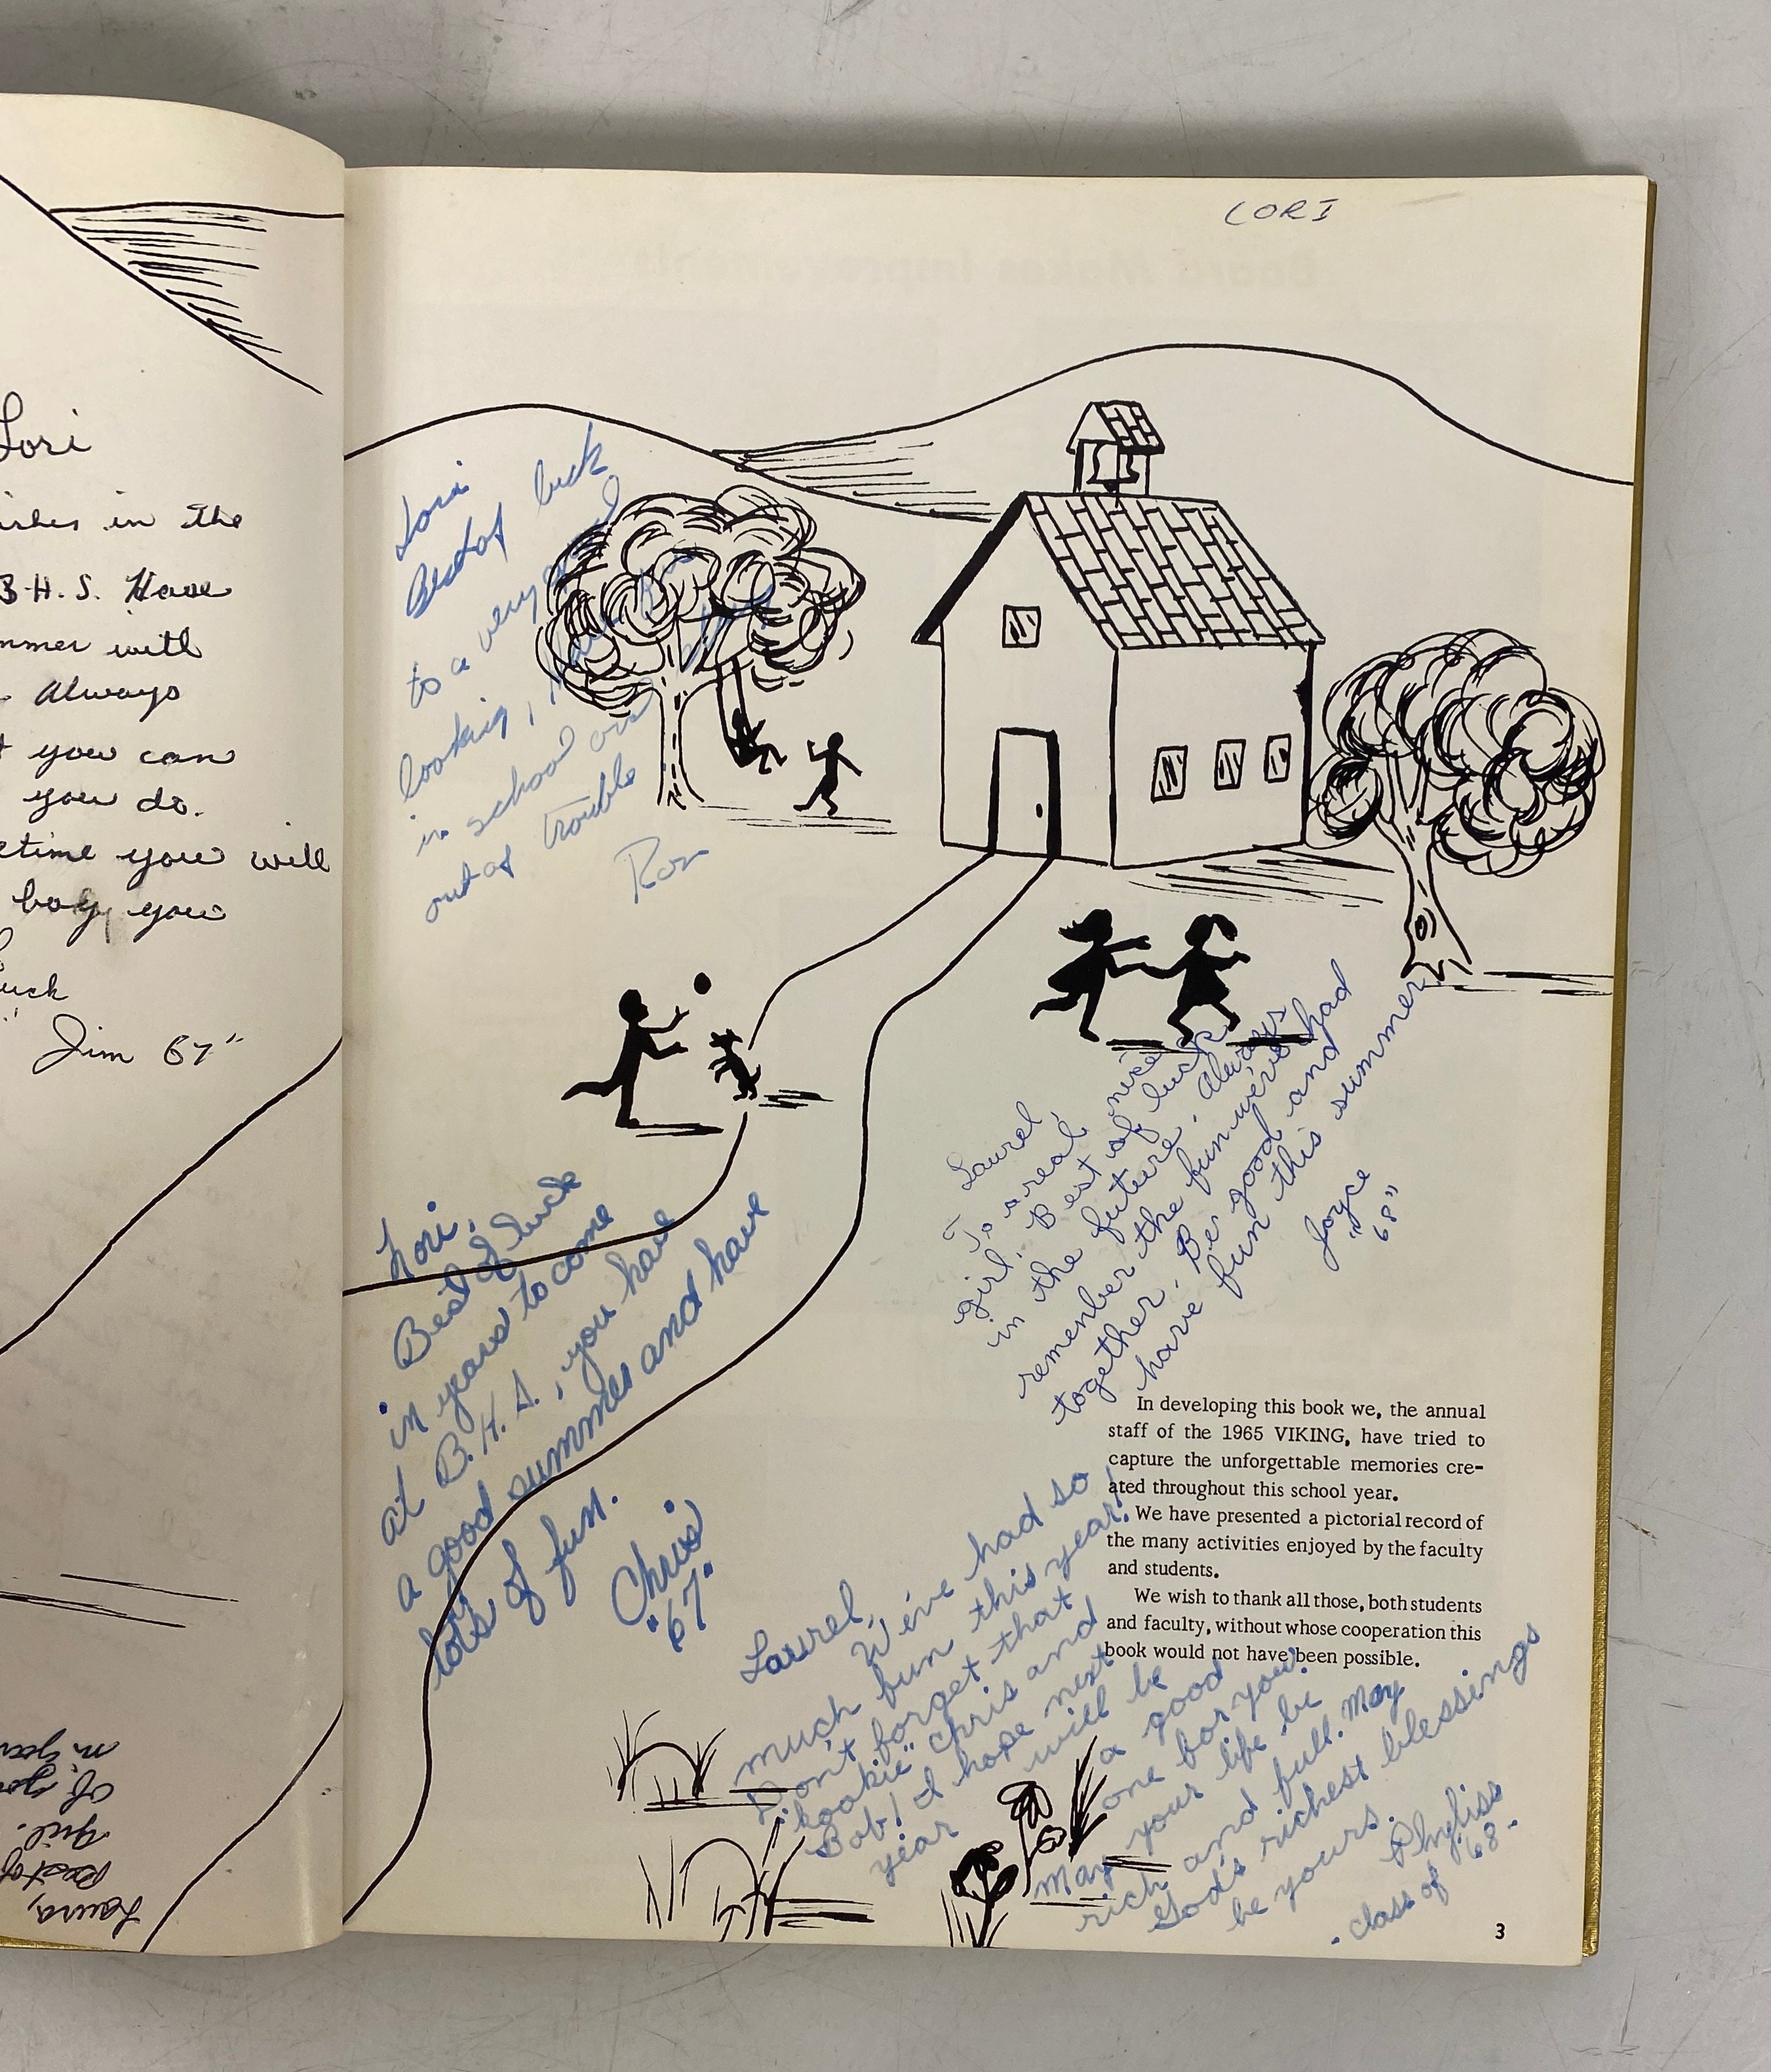 Lori
in the
B.H.S. Have
with
Always
you can
you do.
you will
boy you
Jim 67"
of
girl.
Best of
LORI
Lori
Best of luck
to a very good
looking,
in school and
out of trouble
Ron
Lori,
Best of luck
in years to come
at B.H.S., you have
a good summer and have
lots of fun.
Chris
"67"
Laurel,
To a real nice
girl. Best of luck
in the future. Always
remember the fun we've had
together. Be good and
have fun this summer
Joyce
"68"
In developing this book we, the annual
staff of the 1965 VIKING, have tried to
capture the unforgettable memories cre-
ated throughout this school year.
We have presented a pictorial record of
the many activities enjoyed by the faculty
and students.
We wish to thank all those, both students
and faculty, without whose cooperation this
book would not have been possible.
Laurel,
We've had so
much fun this year!
Don't forget that
"kookie" Chris and
Bob! I hope next
year will be
a good
one for you.
May your life be
rich and full. May
God's richest blessings
be yours.
Phyliss
class of '68
3